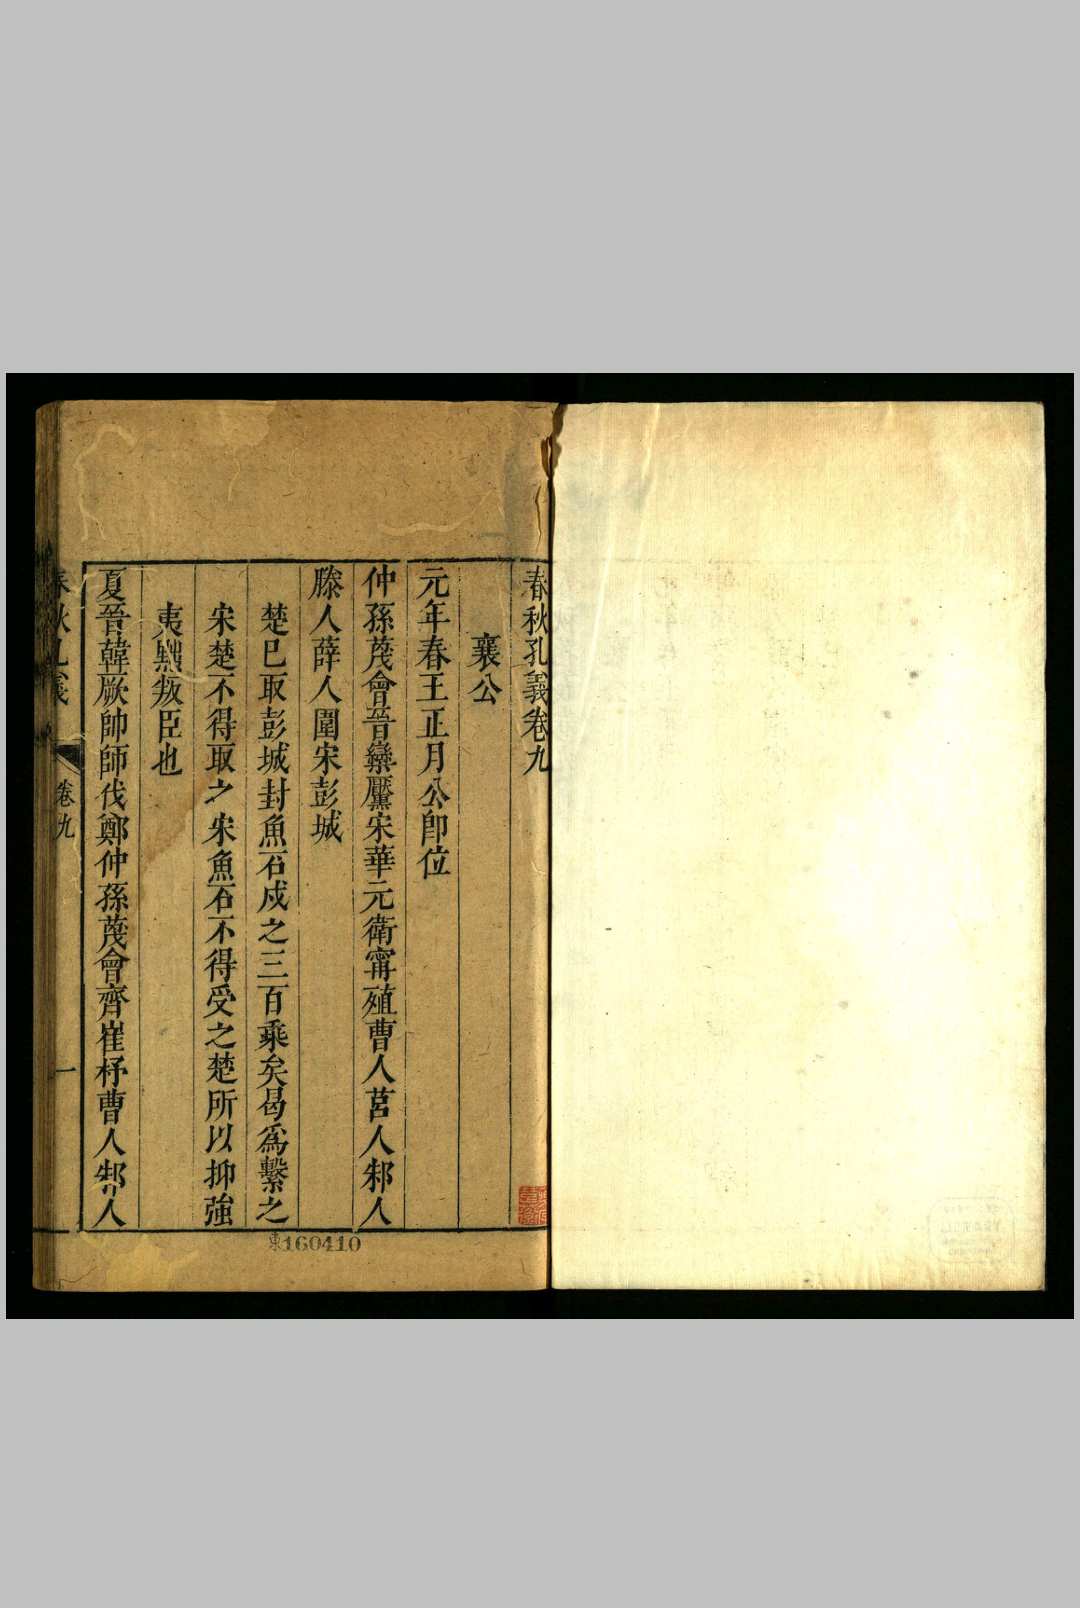 春秋孔義卷九
襄公
元年春王正月公卽位
仲孫蔑會晉欒黶宋華元衛甯殖曹人莒人邾人
滕人薛人圍宋彭城
楚巳取彭城封魚石戍之三百乘矣曷爲繫之
宋楚不得取之宋魚石不得受之楚所以抑強
夷黜叛臣也
夏晉韓厥帥師伐鄭仲孫蔑會齊崔杼曹人邾人
春秋孔義
卷九
一
東160410